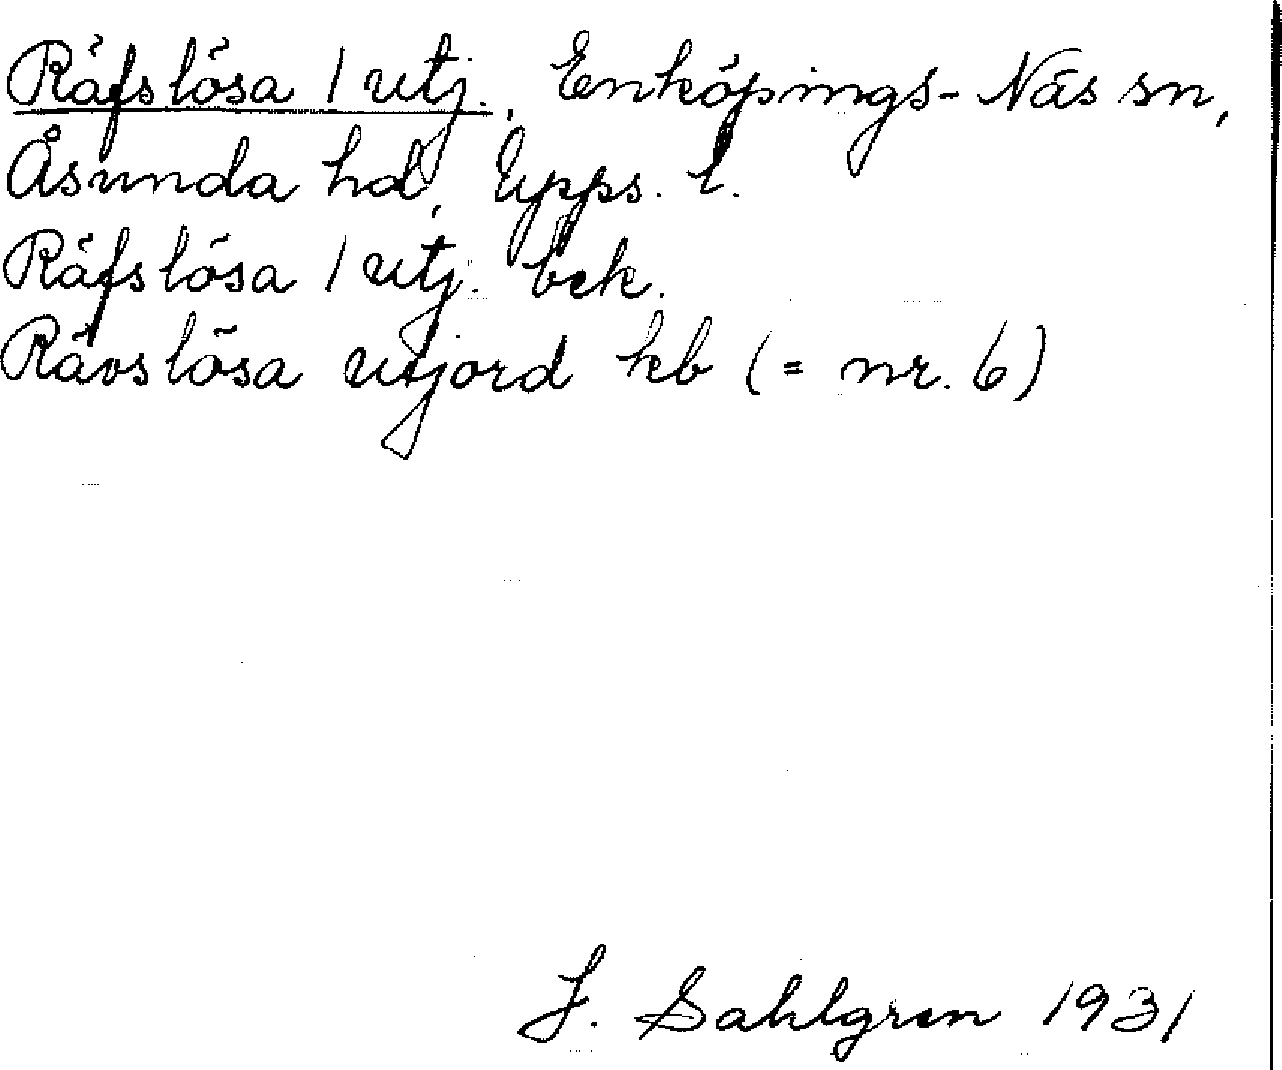 Räfslösa 1 utj., Enköpings-Näs sn,
Åsunda hd, Upps. l.
Räfslösa 1 utj. bek.
Rävslösa utjord kb (= nr. 6)
J. Sahlgren 1931